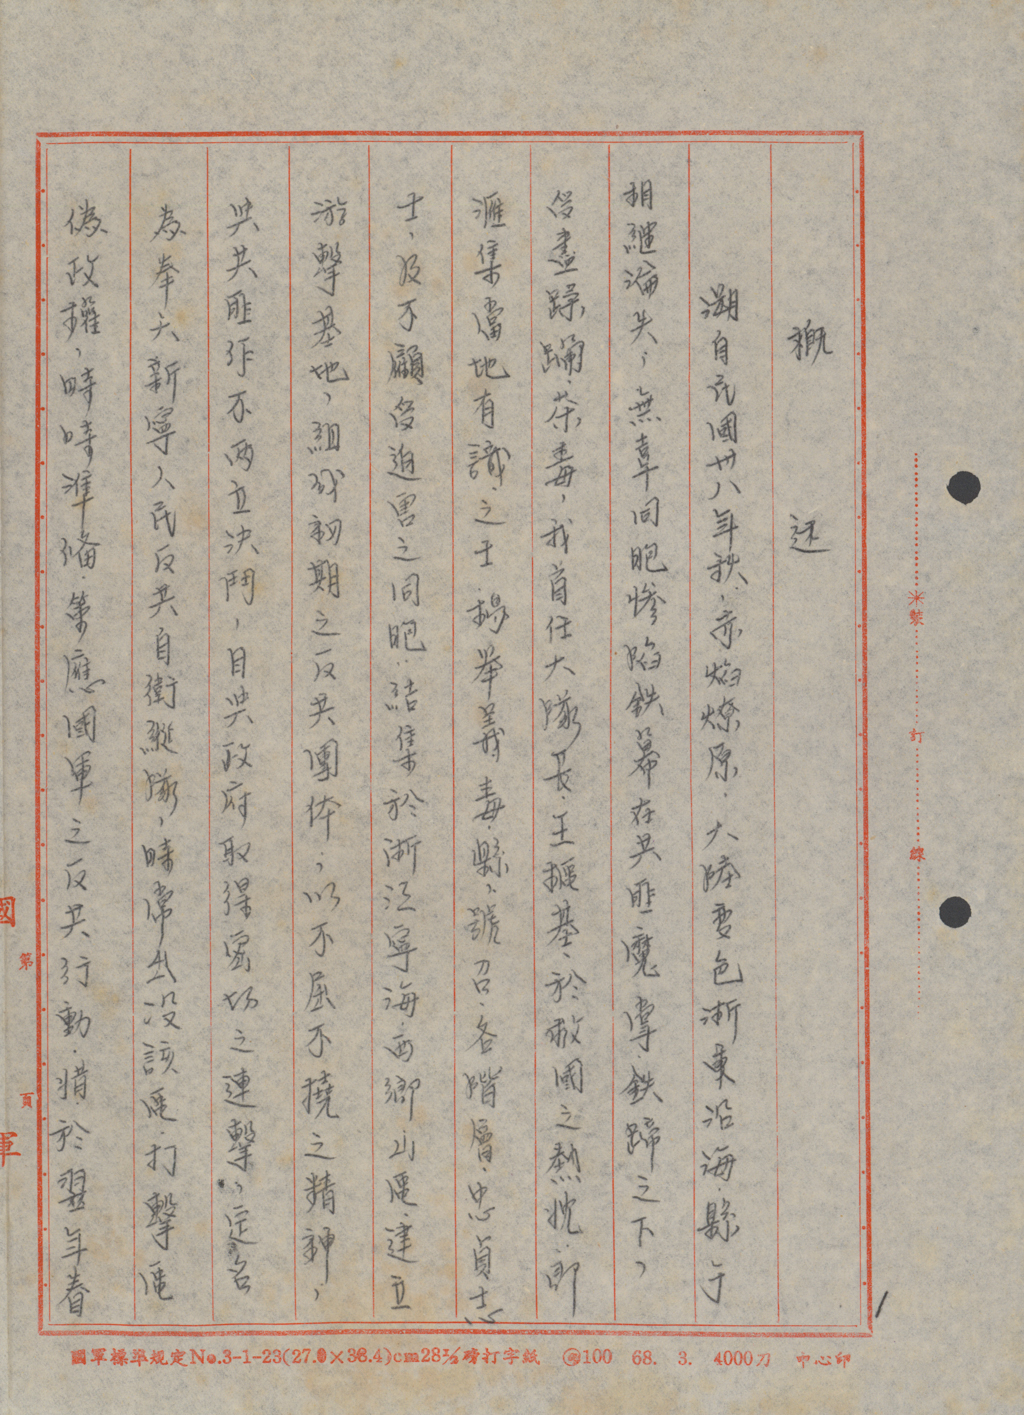 概述
溯自民國卅八年秋，赤焰燎原，大陸变色浙東沿海縣于
相繼淪失，無辜同胞慘陷鉄幕在共匪魔掌鉄蹄之下，
受盡蹂躪荼毒，我首任大隊長王樞基於救國之熱忱，即
滙集當地有識之士楊举義毒縣號召各階層忠貞志
士，及不願受迫害之同胞結集於浙江寧海西鄉山區建立
游擊基地，組成初期之反共團体，以不屈不撓之精神，
与共匪作不两立决鬥，自与政府取得密切之連繫，定名
為奉天新寧人民反共自衛縱隊，時常出没該區打擊匪
偽政權，時時準備策應國軍之反共行動，惜於翌年春
國軍標準規定No.3-1-23(27.0×36.4)cm28½磅打字紙 100 68. 3. 4000刀 中心印
裝
訂
線
國
軍
第
頁